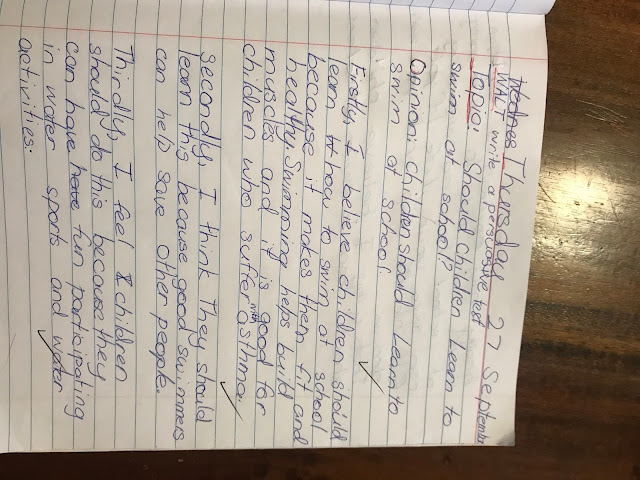 Wednes Thursday 27 September
WALT write a persuasive text
Topic: Should children Learn to
swim at school?
Opinion: children should Learn to
swim at school.
Firstly, I believe children should
learn how to swim at school
because it makes them fit and
healthy. Swimming helps build
muscles and it is good for
children who suffer with asthma.
secondly, I think They should
learn this because good swimmers
can help save other people.
Thirdly, I feel children
should do this because they
can have have fun participating
in water sports and water
activities.